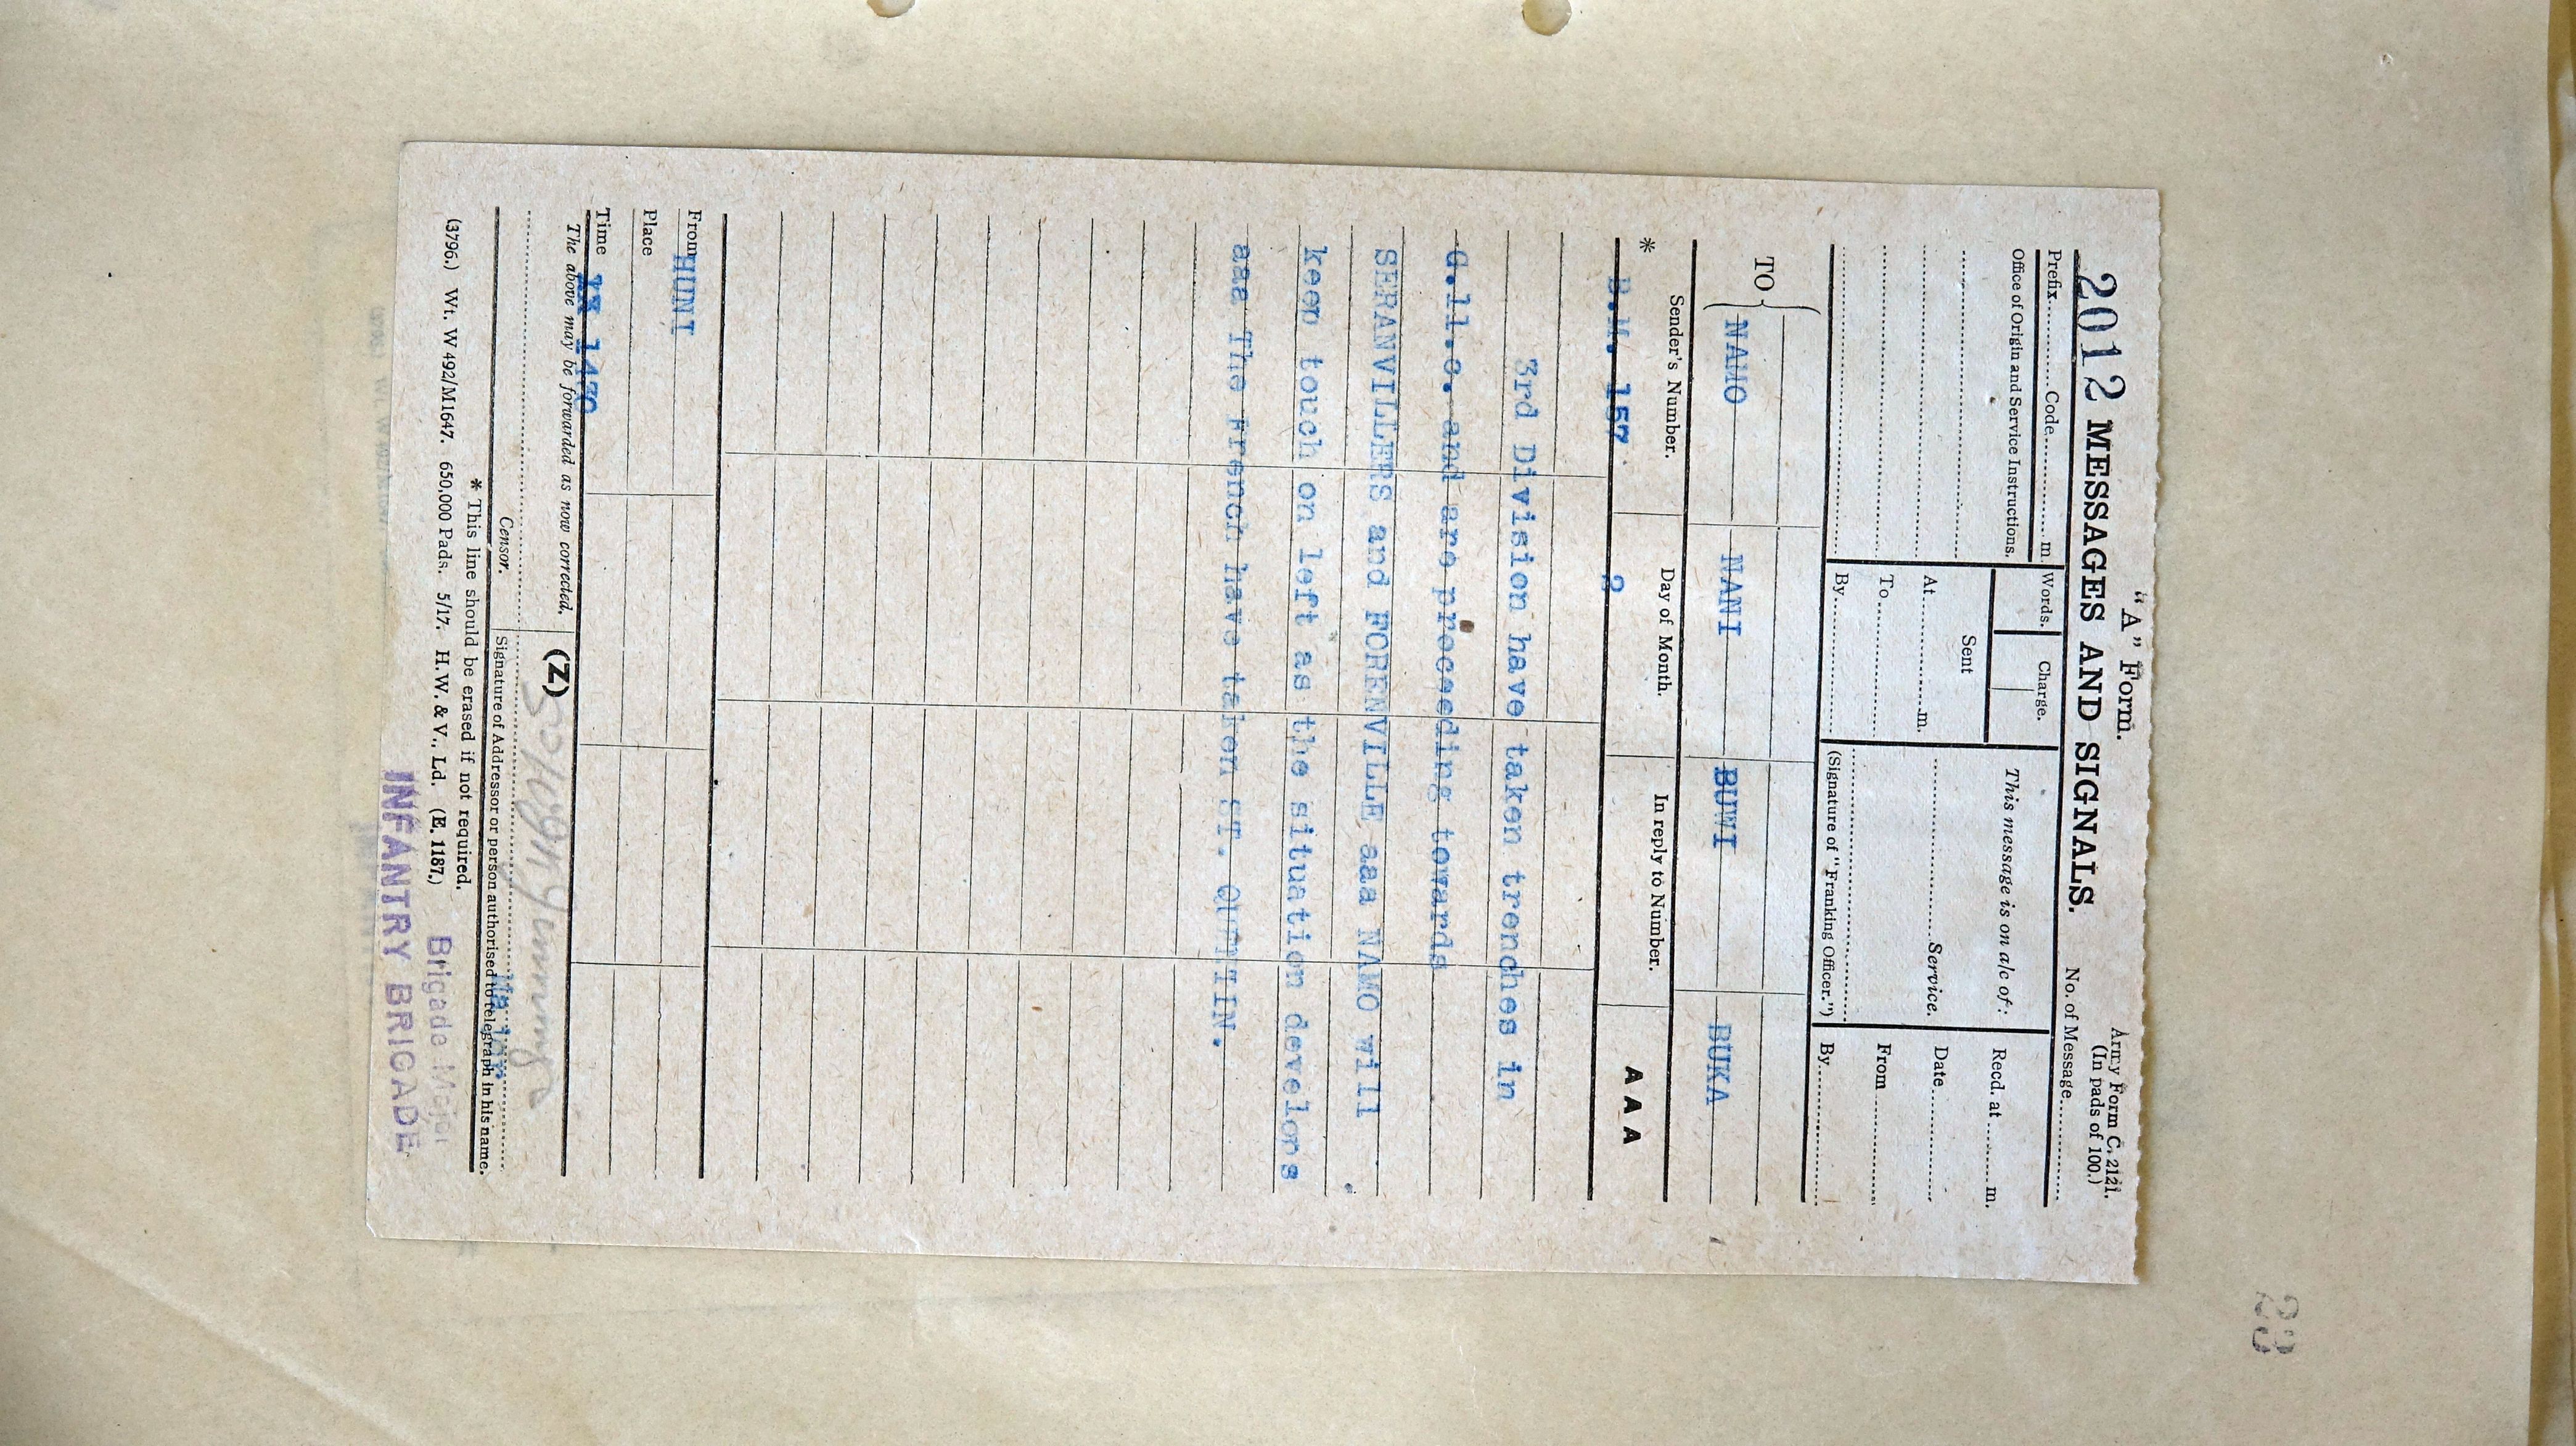 "A" Form.
Army Form C. 2121.
(In pads of 100.)
2012 MESSAGES AND SIGNALS.
No. of Message
Prefix Code m
Words. Charge.
This message is on a/c of:
Recd. at m.
Office of Origin and Service Instructions.
Sent
At m.
Service.
Date
To
From
By
(Signature of "Franking Officer.")
By
TO
NAMO NANI BUWI BUKA
* Sender's Number. Day of Month. In reply to Number.
B.M. 157 2 A A A
3rd Division have taken trenches in
G.11.c. and are proceeding towards
SERANVILLERS and FORENVILLE aaa NAMO will
keep touch on left as the situation develops
aaa The French have taken ST. QUENTIN.
From HUNI
Place
Time 1430
The above may be forwarded as now corrected. (Z)
Censor.
Signature of Addressor or person authorised to telegraph in his name.
Major
* This line should be erased if not required.
(3796.) Wt. W 492/M1647. 650,000 Pads. 5/17. H.W. & V., Ld. (E. 1187.)
Brigade Major
INFANTRY BRIGADE